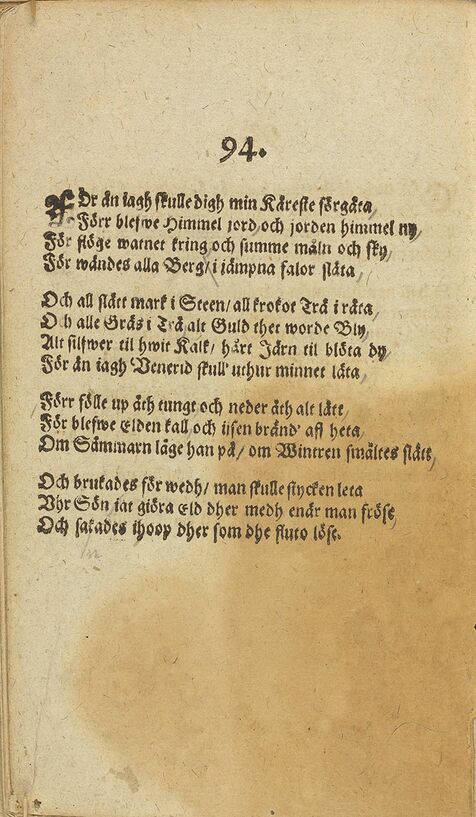 94.
FÖr än iagh skulle digh min Käreste förgäta,
Förr blefwe Himmel jord och jorden himmel ny,
För flöge watnet kring och summe måln och sky,
För wändes alla Berg/ i jämpna falor släta,
Och all slätt mark i Steen/ all krokot Trä i räta,
Och alle Gräs i Trä alt Guld thet worde Bly,
Alt silfwer til hwit Kalk/ hårt Järn til blöta dy,
För än iagh Venerid skull' uthur minnet låta,
Förr fölle up åth tungt och neder åth alt lätt,
För blefwe Elden kall och ijsen bränd' aff heta,
Om Sämmarn läge han på/ om Wintren smältes slätt,
Och brukades för wedh/ man skulle stycken leta
Vhr Sön iat giöra Eld dher medh enär man fröse,
Och sakades ihoop dher som dhe fluto löse.